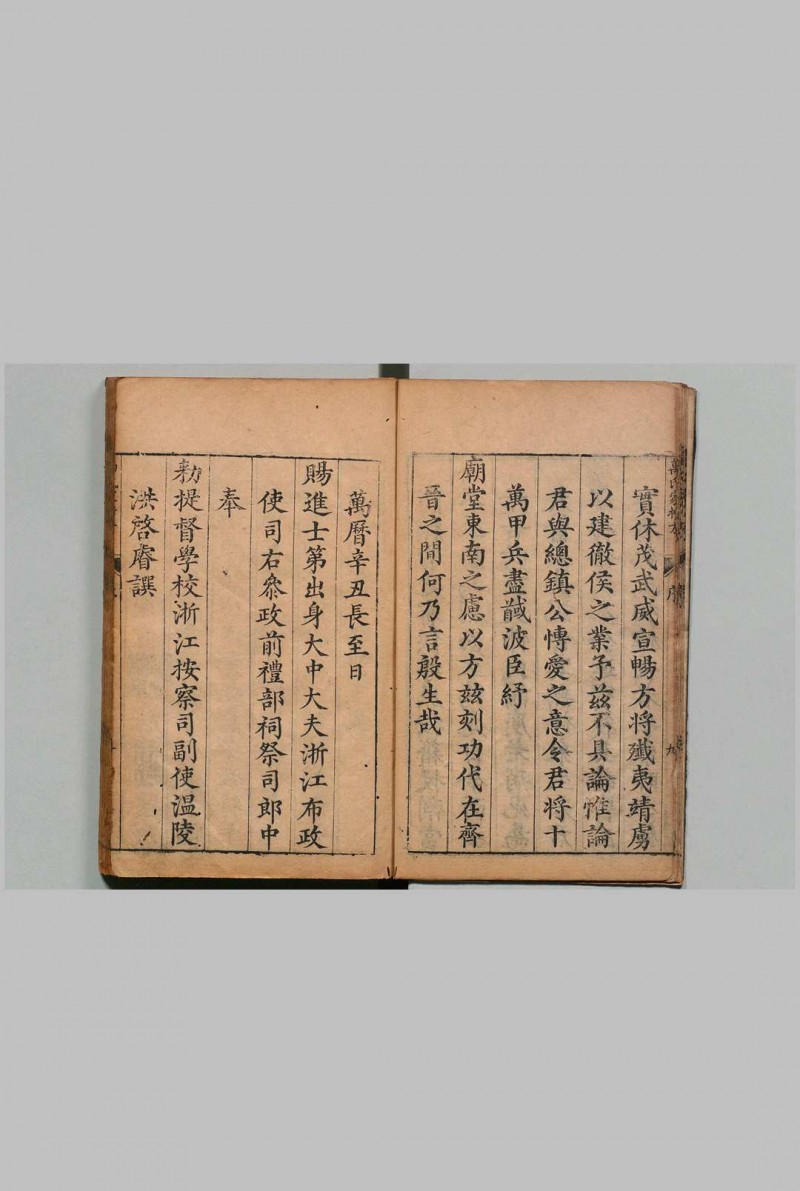 實休茂武威宣暢方將殱夷靖虜
以建徹侯之業予兹不具論惟論
君與總鎮公慱愛之意令君將十
萬甲兵盡馘波臣紓
廟堂東南之慮以方兹刻功代在齊
晉之間何乃言殷生哉
萬曆辛丑長至日
賜進士第出身大中大夫浙江布政
使司右叅政前禮部祠祭司郎中
奉
勑提督學校浙江按察司副使温陵
洪啓睿譔